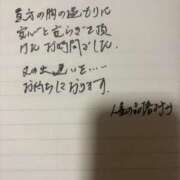 貴方の胸の温もりに
安心と安らぎを頂
けたお時間でした。
又の出逢いを……
お待ちしております